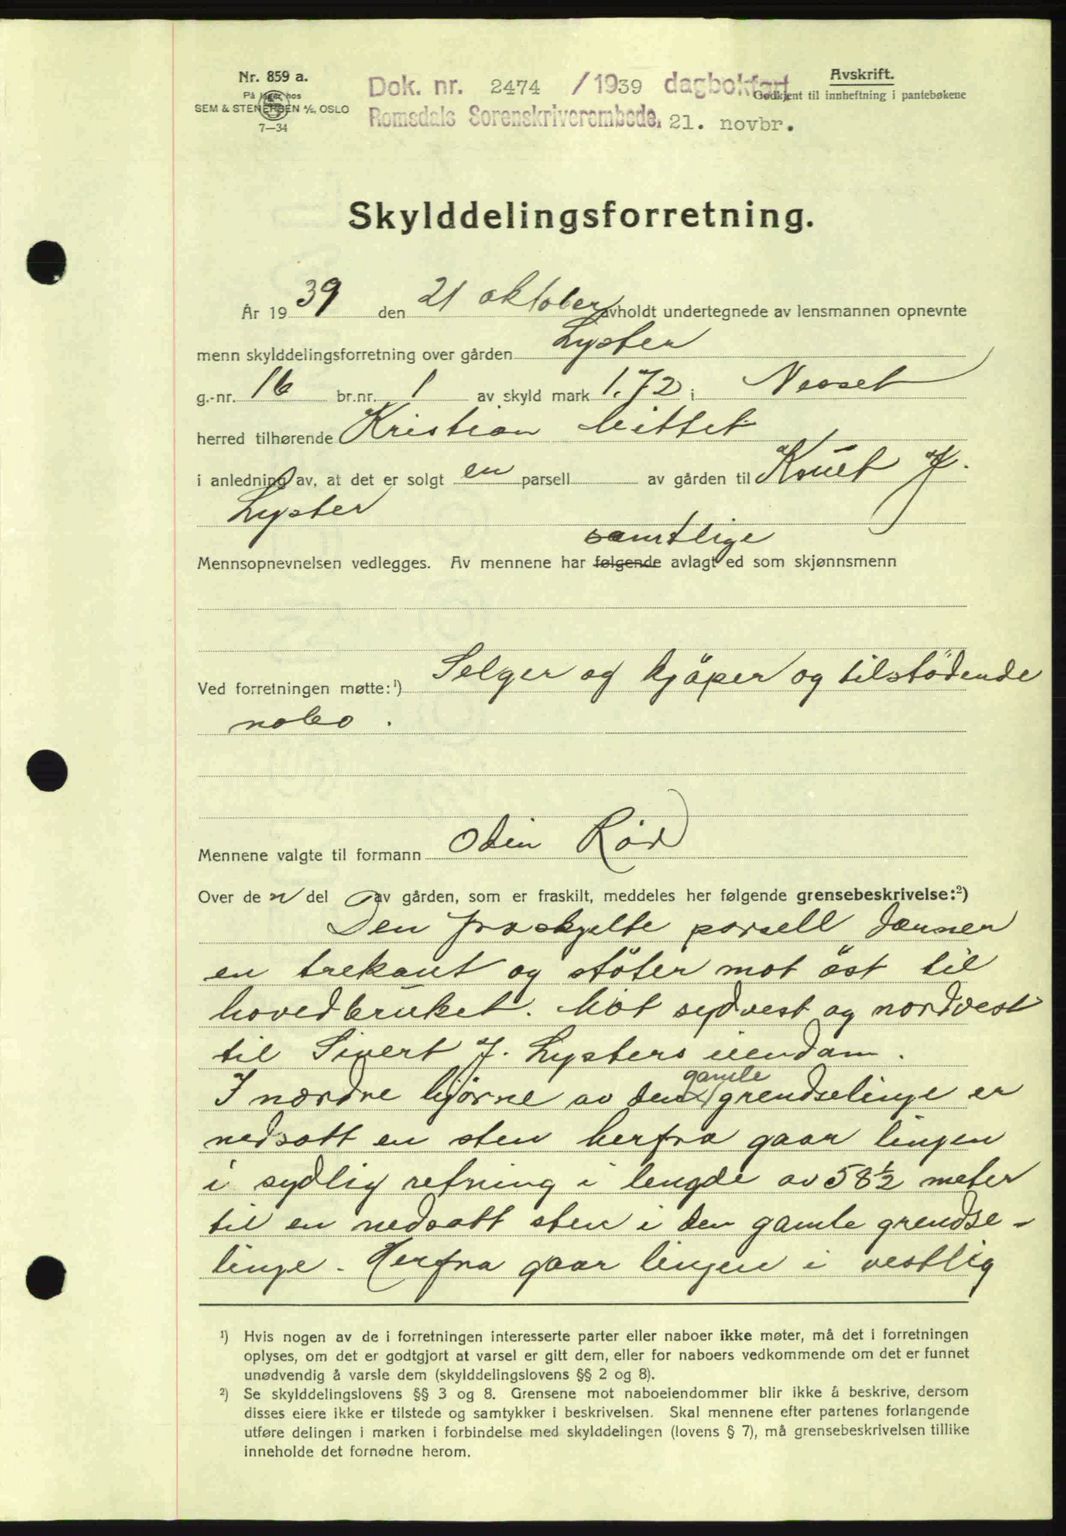 Nr. 859 a.
På lager hos
SEM & STENERSEN A/S, OSLO
7—34
Dok. nr. 2474 / 1939 dagbokført
Romsdals Sorenskriverembede, 21. novbr.
Avskrift.
Godkjent til innheftning i pantebøkene
Skylddelingsforretning.
År 1939 den 21 oktober avholdt undertegnede av lensmannen opnevnte
menn skylddelingsforretning over gården Lyster
g.-nr. 16 br.nr. 1 av skyld mark 1.72 i Nesset
herred tilhørende Kristian Mittet
i anledning av, at det er solgt en parsell av gården til Knut J.
Lyster
samtlige
Mennsopnevnelsen vedlegges. Av mennene har følgende avlagt ed som skjønnsmenn
Ved forretningen møtte:¹) Selger og kjöper og tilstödende
nabo.
Mennene valgte til formann Odin Rød
Over de n del av gården, som er fraskilt, meddeles her følgende grensebeskrivelse:²)
Den fraskyllte parsell danner
en trekant og stöter mot öst til
hovedbruket. Mot sydvest og nordvest
til Sivert J. Lysters eiendom.
gamle
I nordre hjörne av den grendselinje er
nedsatt en sten herfra gaar linjen
i sydlig retning i lengde av 58½ meter
til en nedsatt sten i den gamle grendse-
linje. Herfra gaar linjen i vestlig
¹) Hvis nogen av de i forretningen interesserte parter eller naboer ikke møter, må det i forretningen
oplyses, om det er godtgjort at varsel er gitt dem, eller for naboers vedkommende om det er funnet
unødvendig å varsle dem (skylddelingslovens §§ 2 og 8).
²) Se skylddelingslovens §§ 3 og 8. Grensene mot naboeiendommer blir ikke å beskrive, dersom
disses eiere ikke er tilstede og samtykker i beskrivelsen. Skal mennene efter partenes forlangende
utføre delingen i marken i forbindelse med skylddelingen (lovens § 7), må grensebeskrivelsen tillike
inneholde det fornødne herom.